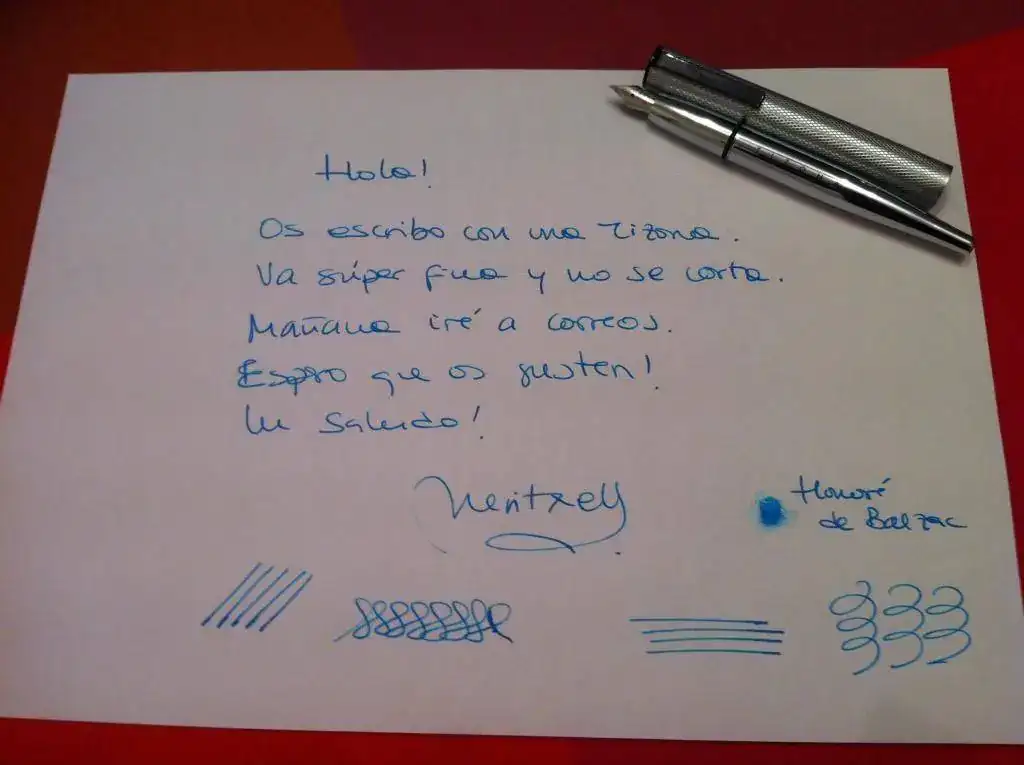 Hola!
Os escribo con una Tizona.
Va súper fina y no se corta.
Mañana iré a correos.
Espero que os gusten!
Un saludo!
Meritxell
Honoré
de Balzac